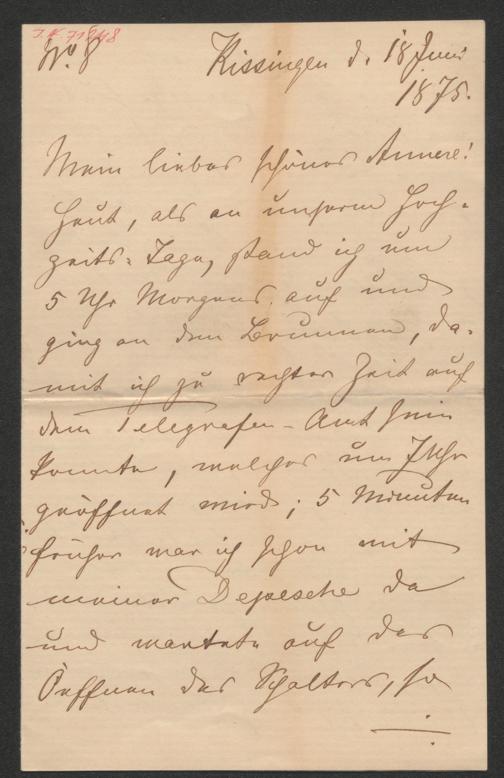 I.N. 71948
No. 8
Kissingen d. 18 Juni
1875.
Mein liebes schönes Annerl!
Heut, als an unserm Hoch-
zeits-Tage, stand ich um
5 Uhr Morgens auf und
ging an den Brunnen, da-
mit ich zu rechter Zeit auf
dem Telegrafen-Amt sein
konnte, welches um 7 Uhr
geöffnet wird; 5 Minuten
früher war ich schon mit
meiner Depesche da
und wartete auf das
Oeffnen des Schalters, so